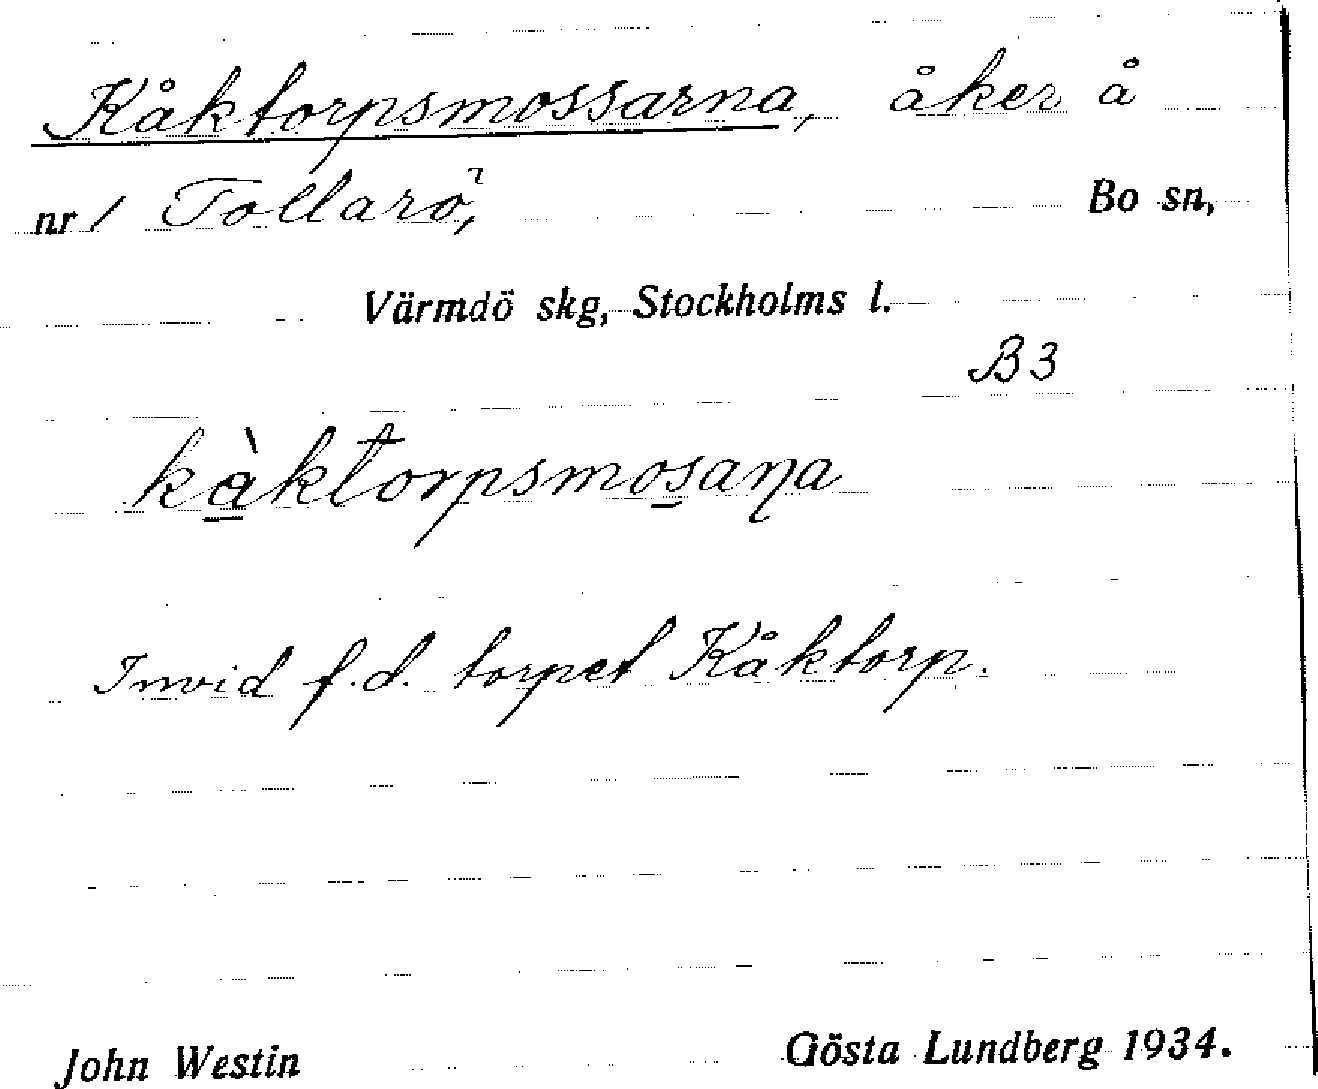 Kåktorpsmossarna, åker å
nr 1 Tollarö, Bo sn,
Värmdö skg, Stockholms l.
B3
kàktorpsmosaṇa
Invid f.d. torpet Kåktorp.
John Westin Gösta Lundberg 1934.